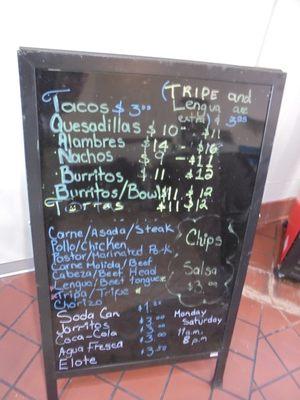 (TRIPE and
Lengua are
extra) $ 3.00
Tacos $ 3.00
Quesadillas $ 10 - $11
Alambres $ 14 - $16
Nachos $ 9 - $11
Burritos $ 11 $ 13
Burritos/Bowl $11 $ 12
Tortas $11 $12
Carne/Asada/Steak
Pollo/Chicken
Pastor/Marinated Pork
Carne Molida/Beef
Cabeza/Beef Head
Lengua/Beef tongue
Tripa/Tripe
Chorizo
Chips
Salsa
$3.00
Soda Can $1.50
Jarritos $3.00
Coca-Cola $3.00
Agua Fresca $3.00
Elote $3.50
Monday
Saturday
11 a.m.
8 p.m